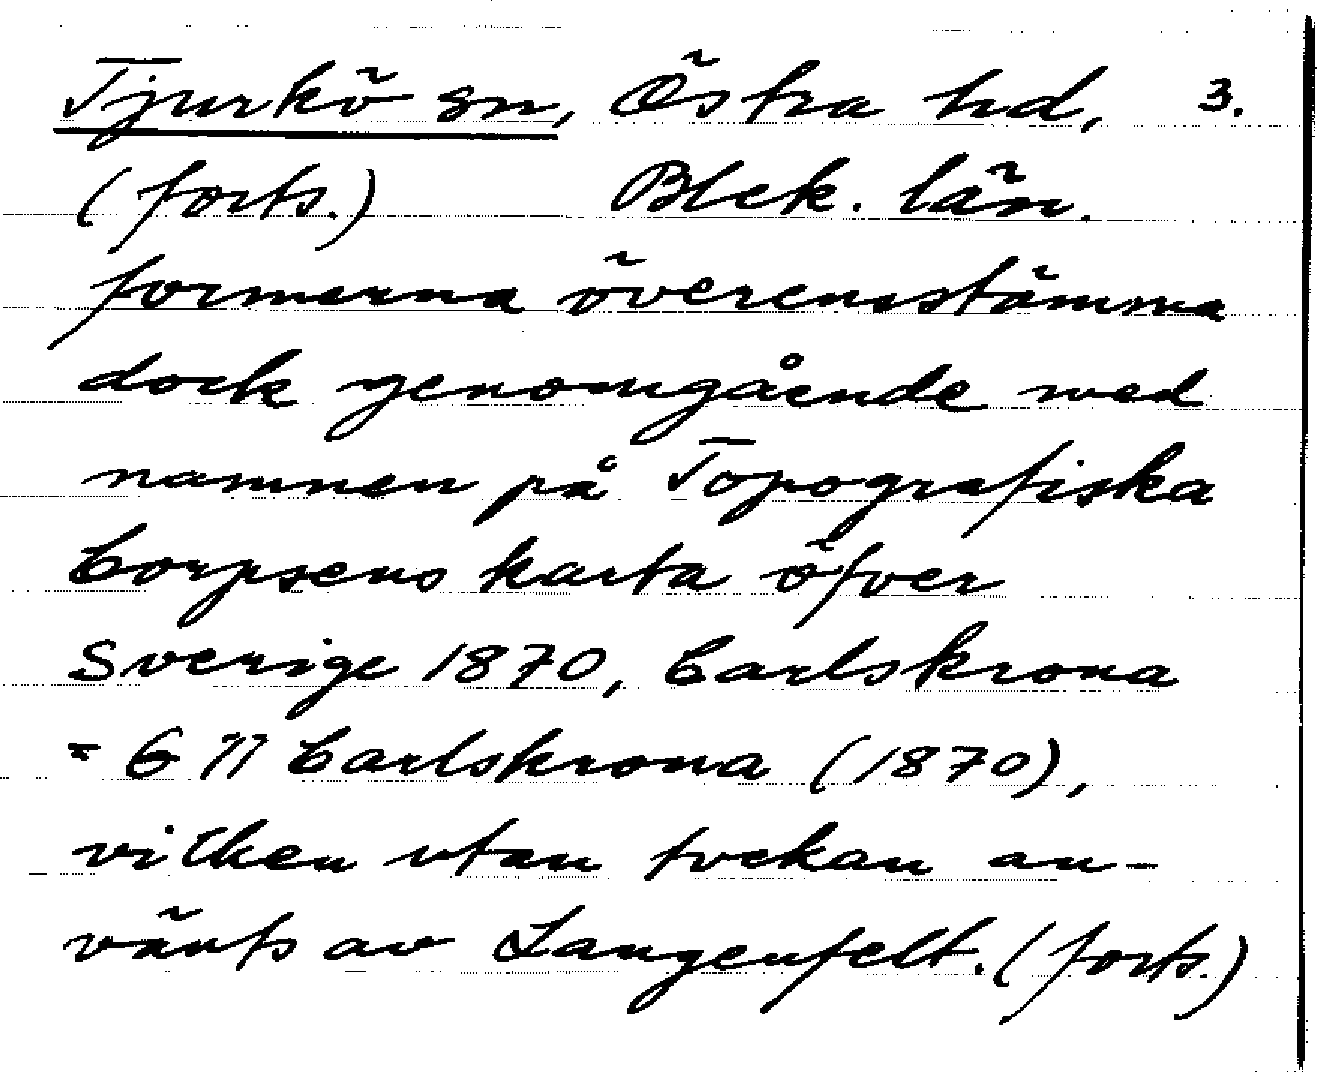 Tjurkö sn, Östra hd, 3.
(forts.) Blek. län.
formerna överensstämma
dock genomgående med
namnen på Topografiska
Corpsens karta öfver
Sverige 1870, Carlskrona
= G 11 Carlskrona (1870),
vilken utan tvekan an-
vänts av Langenfelt. (forts.)